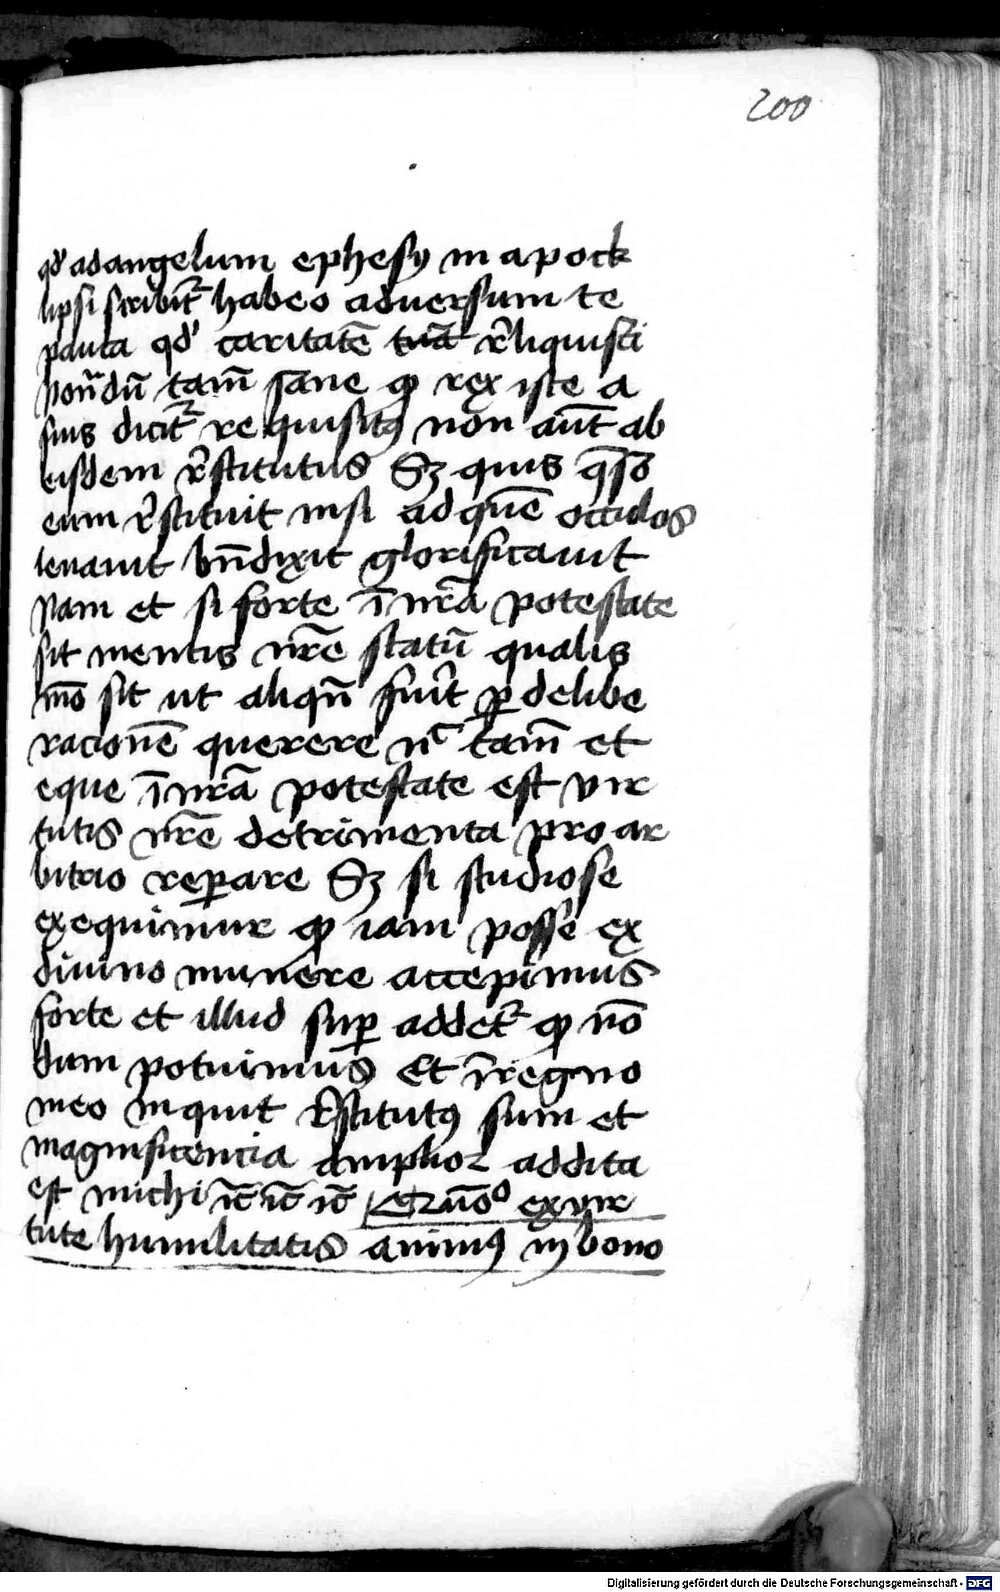 200
qd' ad angelum ephesy in apock
lipsi scribit᷑ habeo aduersum te
pauca qd' caritatē tuā r̄liquisti
Non̄dū tam̄ sane ꝙ rex iste a
suis dicit᷑ requisitꝰ non aūt ab
eisdem r̄stitutus Sꝫ quis q̄so
eum r̄stituit nisi ad quē occulos
leuauit bn̄dixit glorificauit
Nam et si forte ī nr̄a potestate
sit mentis nr̄e statū qualis
mo sit ut aliqn̄ fuit ꝑ delibe
racionē querere nc̄ tam̄ et
eque ī nr̄a potestate est vir
tutis nr̄e detrimenta pro ar
bitrio reꝑare Sꝫ si studiose
exequimur ꝙ iam posse ex
diuino munere accepimus
forte et illud suꝑ addet᷑ ꝙ nō
dum potuimus Et ī regno
meo inquit r̄stitutꝰ sum et
magnificencia amplior addita
est michi ic̄ ic̄ ic̄ ex vir
tute humilitatis animꝰ in bono
Digitalisierung gefördert durch die Deutsche Forschungsgemeinschaft - DFG